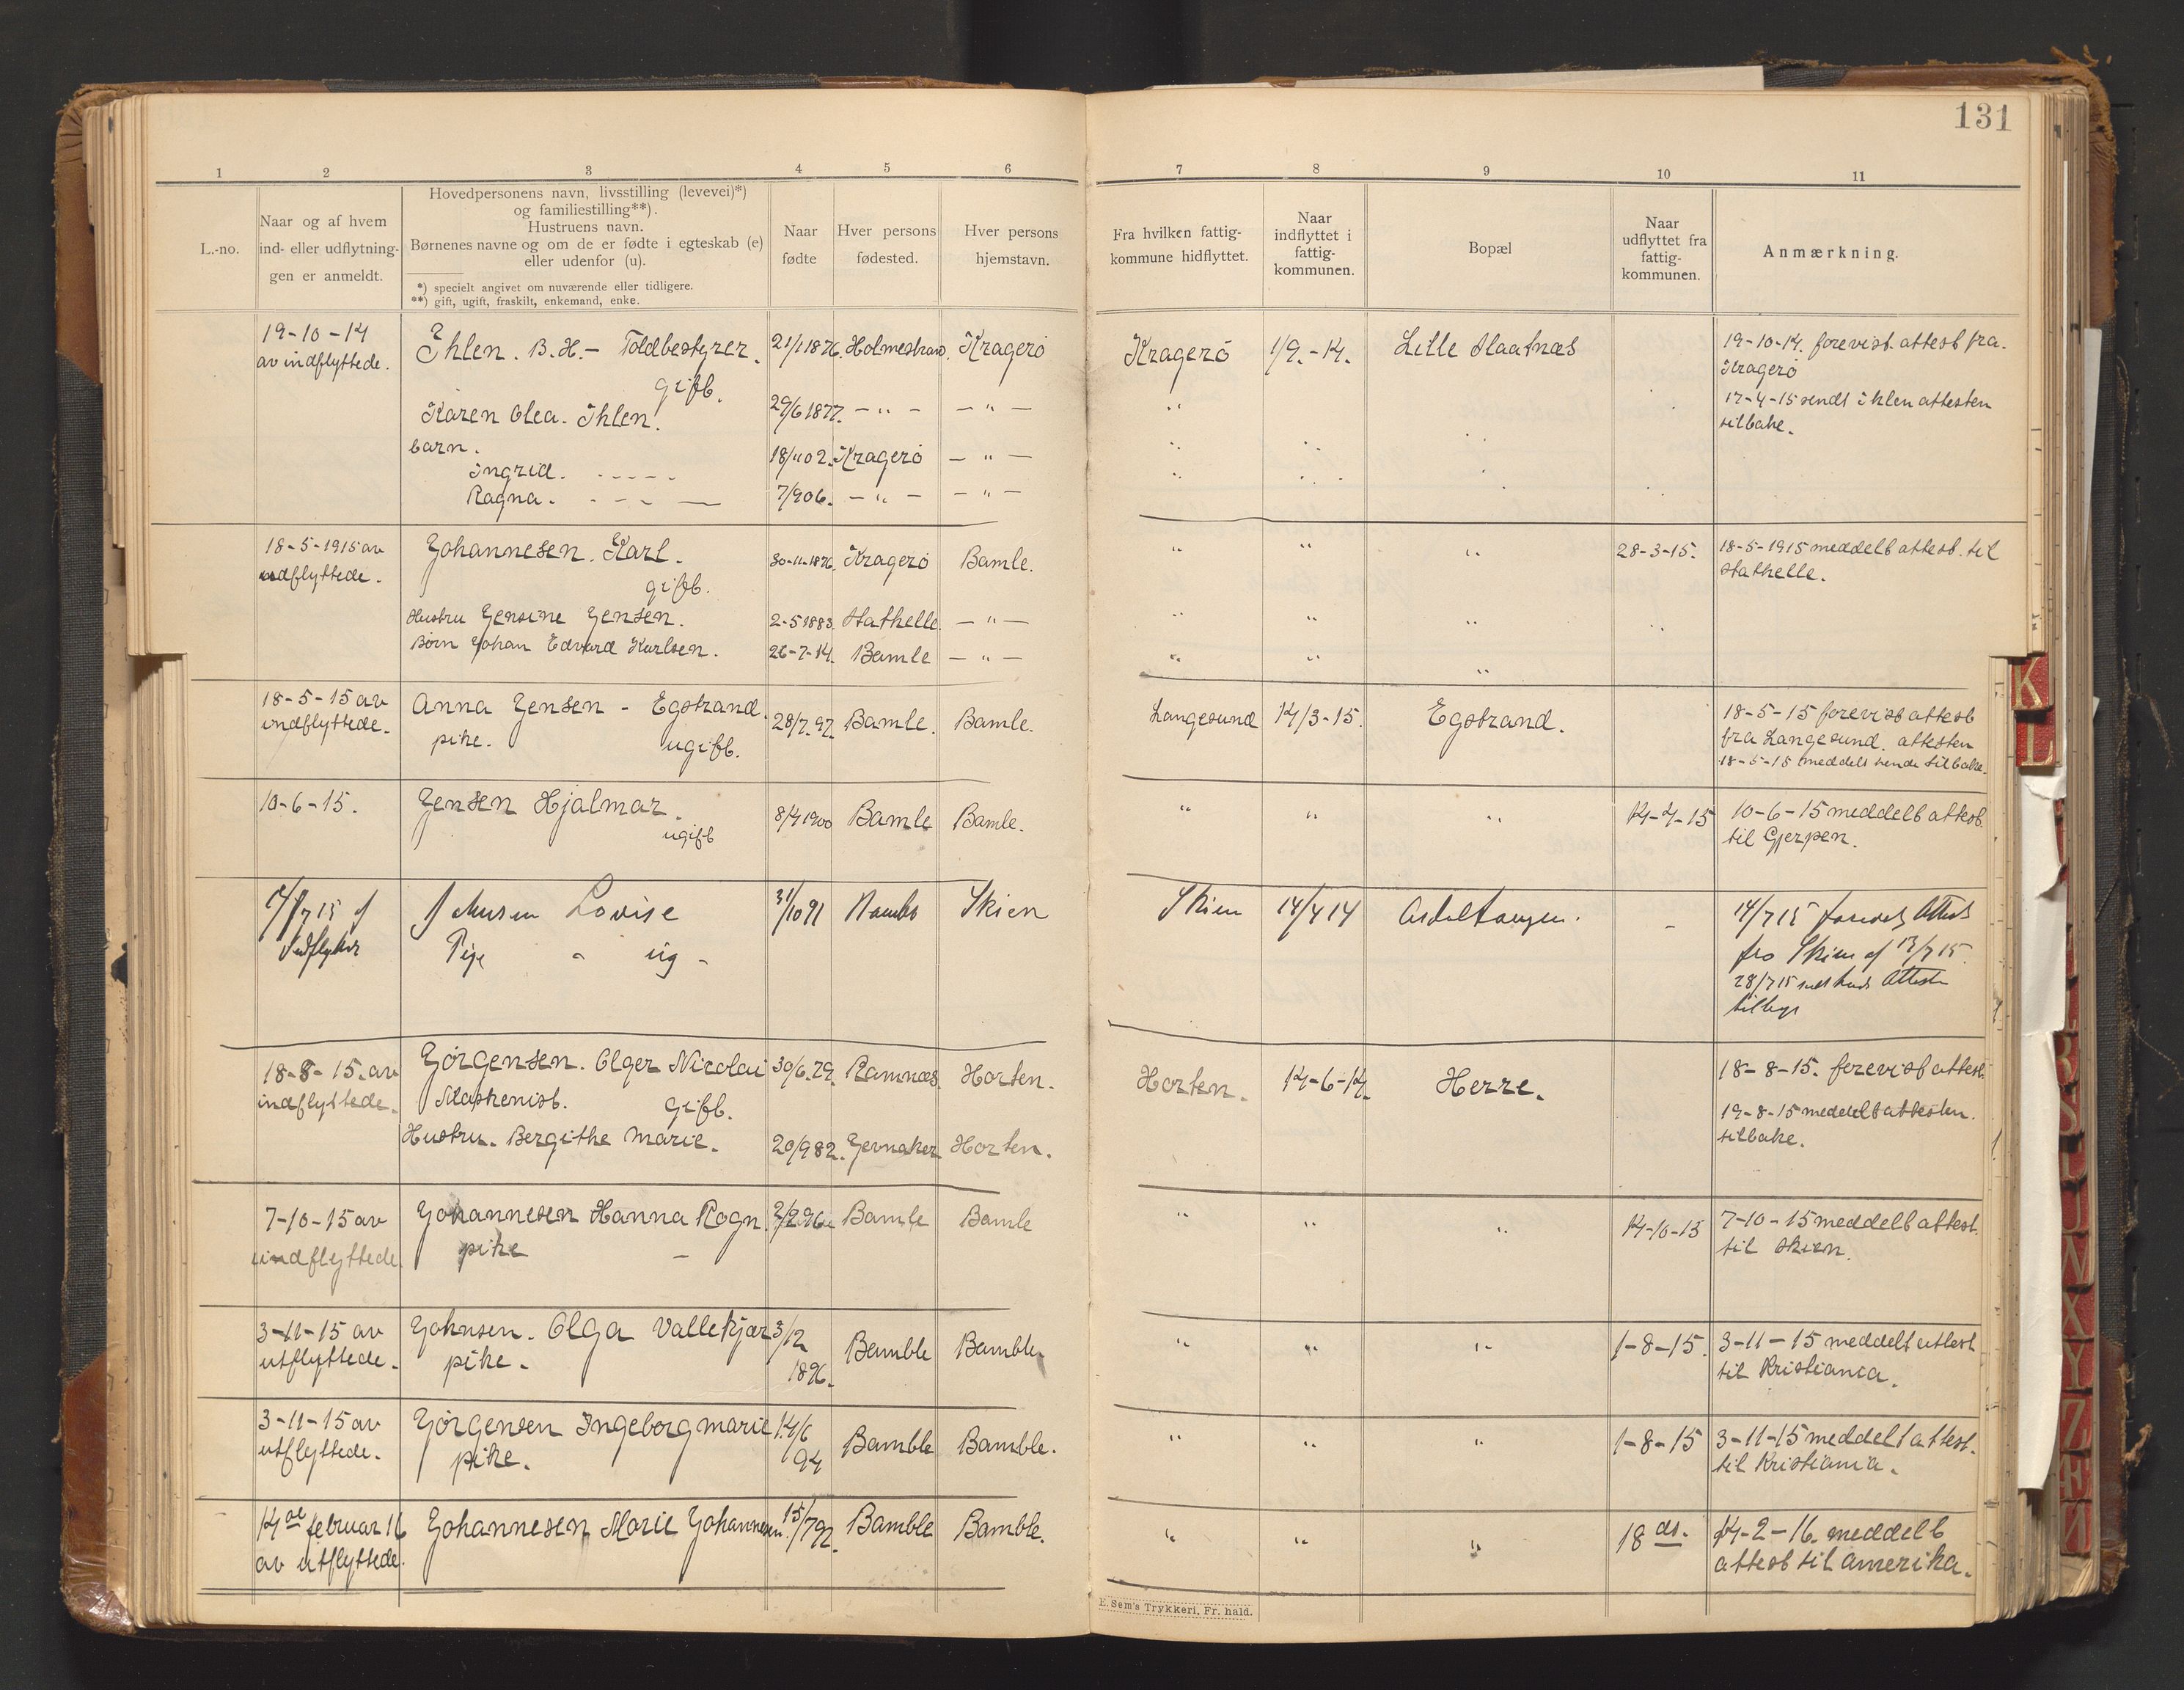 131
1 2 3 4 5 6 7 8 9 10 11
L.-no.
Naar og af hvem
ind- eller udflytnin-
gen er anmeldt.
Hovedpersonens navn, livsstilling (levevei)*)
og familiestilling**).
Hustruens navn.
Børnenes navne og om de er fødte i egteskab (e)
eller udenfor (u).
*) specielt angivet om nuværende eller tidligere.
**) gift, ugift, fraskilt, enkemand, enke.
Naar
fødte
Hver persons
fødested.
Hver persons
hjemstavn.
Fra hvilken fattig-
kommune hidflyttet.
Naar
indflyttet i
fattig-
kommunen.
Bopæl
Naar
udflyttet fra
fattig-
kommunen.
Anmærkning.
19-10-14 Ihlen. B. H. - Toldbestyrer. 21/1 1876. Holmestrand. Kragerø Kragerø 1/9.-14. Lille Slaatnæs 19-10-14. forevist attest fra.
av indflyttede. gift. Kragerø
Karen Olea. Ihlen. 29/6 1877. - " - - " - " 17-4-15 sendt Ihlen attesten
barn. tilbake.
Ingrid. 18/11 02. Kragerø - " -
Ragna. 7/9 06. - " - - " -
18-5-1915 av Johannesen. Karl. 30-11-1876. Kragerø Bamle. " " " 28-3-15. 18-5-1915 meddelt attest. til
udflyttede. gift. Stathelle.
Hustru Jensine Jensen. 2-5 1883. Stathelle. - " - " " "
Børn Johan Edvard Karlsen. 26-7-14. Bamle - " - " " "
18-5-15 av Anna Jensen - Egstrand. 28/7. 97. Bamle. Bamle. Langesund 14/3-15. Egstrand. 18-5-15 forevist attest
indflyttede. pike. ugift. fra Langesund. attesten
18-5-15 meddelt hende tilbake.
10-6-15. Jensen Hjalmar. 8/4 1900 Bamle Bamle. " " " 14-4-15 10-6-15 meddelt attest.
ugift til Gjerpen.
14/7 15 af Johnsen Lovise 31/10 91 Bamle Skien Skien 14/4 14 - 14/7 15 forevist Attest
Indflytter Pige - ug - fra Skien af 13/7 15.
28/7 15 sendt hende Attesten
tilbage
18-8-15. av Jørgensen. Olger Nicolai 30/6. 79. Ramnæs. Horten. Horten. 14-6-14. Herre. 18-8-15. forevist attest.
indflyttede. Maskenist. gift. 19-8-15 meddelt attesten.
Hustru. Bergithe Marie. 20/9 82. Jevnaker. Horten. tilbake.
7-10-15 av Johannesen Hanna Rogn. 2/2 96 Bamle Bamle " " " 14-10-15 7-10-15 meddelt attest.
indflyttede pike - til Skien.
3-11-15 av Johnsen. Olga Vallekjær 3/12 Bamble Bamble. " " " 1-8-15. 3-11-15 meddelt attest
utflyttede. pike. 1896. til Kristiania.
3-11-15 av Jørgensen Ingeborg Marie 14/6 Bamble Bamble. " " " 1-8-15 3-11-15 meddelt attest.
utflyttede. pike. 94 til Kristiania.
14de februar 16 Johannesen Marie Johannesen. 15/7 92. Bamble Bamble. " " " 18 ds. 14-2-16. meddelt
av utflyttede. attest til Amerika.
E. Sem's Trykkeri, Fr. hald.
K
L
X
Y
Z
Æ